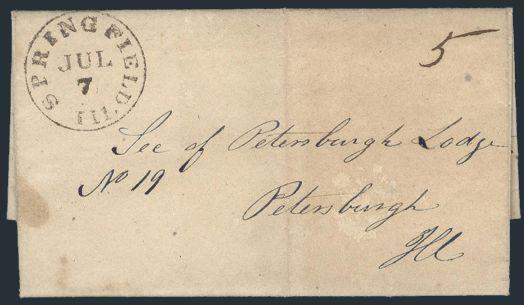 SPRINGFIELD Ill.
JUL
7
5
Sec of Petersburgh Lodge
No 19
Petersburgh
Ill